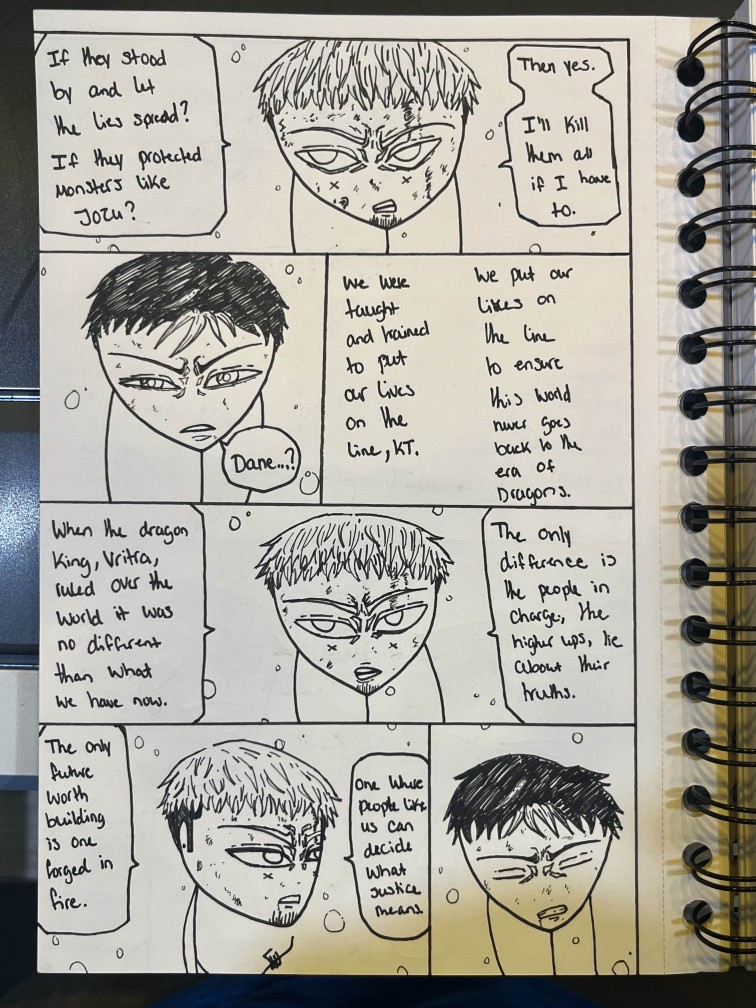 If they stood
by and let
the lies spread?
If they protected
Monsters like
Jozu?
Then yes.
I'll Kill
them all
if I have
to.
Dane...?
We were
taught
and trained
to put
our lives
on the
line, KT.
We put our
lives on
the line
to ensure
this world
never goes
back to the
era of
Dragons.
When the dragon
King, Vritra,
ruled over the
world it was
no different
than what
we have now.
The only
difference is
the people in
charge, the
higher ups, lie
about their
truths.
The only
future
worth
building
is one
forged in
fire.
One where
people like
us can
decide
what
justice
means.